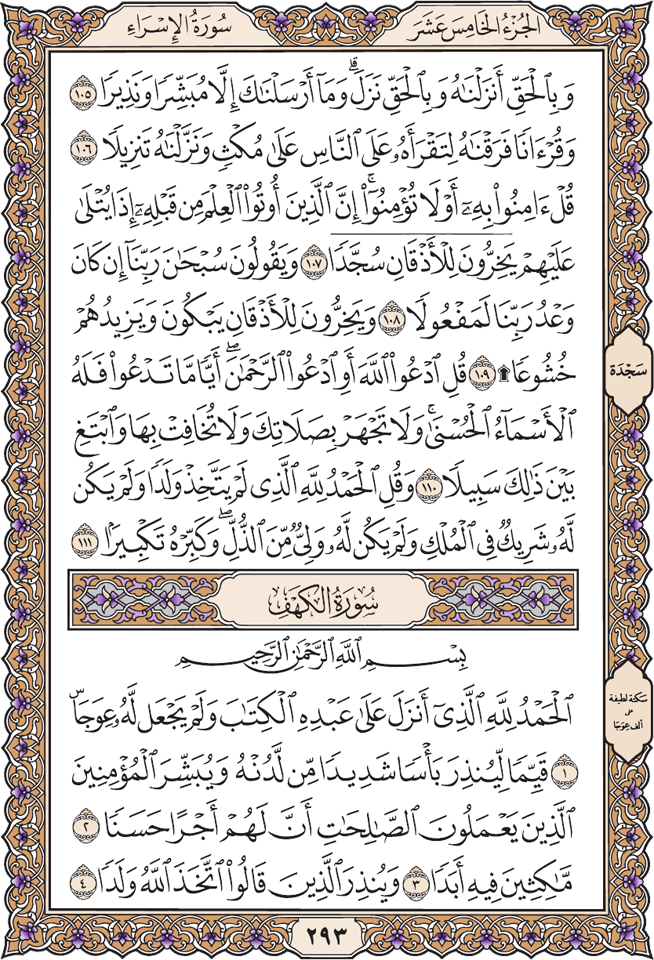 الجزء الخامس عشر
سورة الإسراء
وَبِٱلْحَقِّ أَنزَلْنَٰهُ وَبِٱلْحَقِّ نَزَلَ ۗ وَمَآ أَرْسَلْنَٰكَ إِلَّا مُبَشِّرًا وَنَذِيرًا ١٠٥
وَقُرْءَانًا فَرَقْنَٰهُ لِتَقْرَأَهُۥ عَلَى ٱلنَّاسِ عَلَىٰ مُكْثٍ وَنَزَّلْنَٰهُ تَنزِيلًا ١٠٦
قُلْ ءَامِنُوا۟ بِهِۦٓ أَوْ لَا تُؤْمِنُوٓا۟ ۚ إِنَّ ٱلَّذِينَ أُوتُوا۟ ٱلْعِلْمَ مِن قَبْلِهِۦٓ إِذَا يُتْلَىٰ
عَلَيْهِمْ يَخِرُّونَ لِلْأَذْقَانِ سُجَّدًا ١٠٧ وَيَقُولُونَ سُبْحَٰنَ رَبِّنَآ إِن كَانَ
وَعْدُ رَبِّنَا لَمَفْعُولًا ١٠٨ وَيَخِرُّونَ لِلْأَذْقَانِ يَبْكُونَ وَيَزِيدُهُمْ
خُشُوعًا ١٠٩ قُلِ ٱدْعُوا۟ ٱللَّهَ أَوِ ٱدْعُوا۟ ٱلرَّحْمَٰنَ ۖ أَيًّا مَّا تَدْعُوا۟ فَلَهُ
ٱلْأَسْمَآءُ ٱلْحُسْنَىٰ ۚ وَلَا تَجْهَرْ بِصَلَاتِكَ وَلَا تُخَافِتْ بِهَا وَٱبْتَغِ
بَيْنَ ذَٰلِكَ سَبِيلًا ١١٠ وَقُلِ ٱلْحَمْدُ لِلَّهِ ٱلَّذِى لَمْ يَتَّخِذْ وَلَدًا وَلَمْ يَكُن
لَّهُۥ شَرِيكٌ فِى ٱلْمُلْكِ وَلَمْ يَكُن لَّهُۥ وَلِىٌّ مِّنَ ٱلذُّلِّ ۖ وَكَبِّرْهُ تَكْبِيرًۢا ١١١
سَجْدَة
سورة الكهف
بِسْمِ ٱللَّهِ ٱلرَّحْمَٰنِ ٱلرَّحِيمِ
ٱلْحَمْدُ لِلَّهِ ٱلَّذِىٓ أَنزَلَ عَلَىٰ عَبْدِهِ ٱلْكِتَٰبَ وَلَمْ يَجْعَل لَّهُۥ عِوَجَا ۜ
١ قَيِّمًا لِّيُنذِرَ بَأْسًا شَدِيدًا مِّن لَّدُنْهُ وَيُبَشِّرَ ٱلْمُؤْمِنِينَ
ٱلَّذِينَ يَعْمَلُونَ ٱلصَّٰلِحَٰتِ أَنَّ لَهُمْ أَجْرًا حَسَنًا ٢
مَّٰكِثِينَ فِيهِ أَبَدًا ٣ وَيُنذِرَ ٱلَّذِينَ قَالُوا۟ ٱتَّخَذَ ٱللَّهُ وَلَدًا ٤
سكتة لطيفة
على
ألف عِوَجَا
٢٩٣